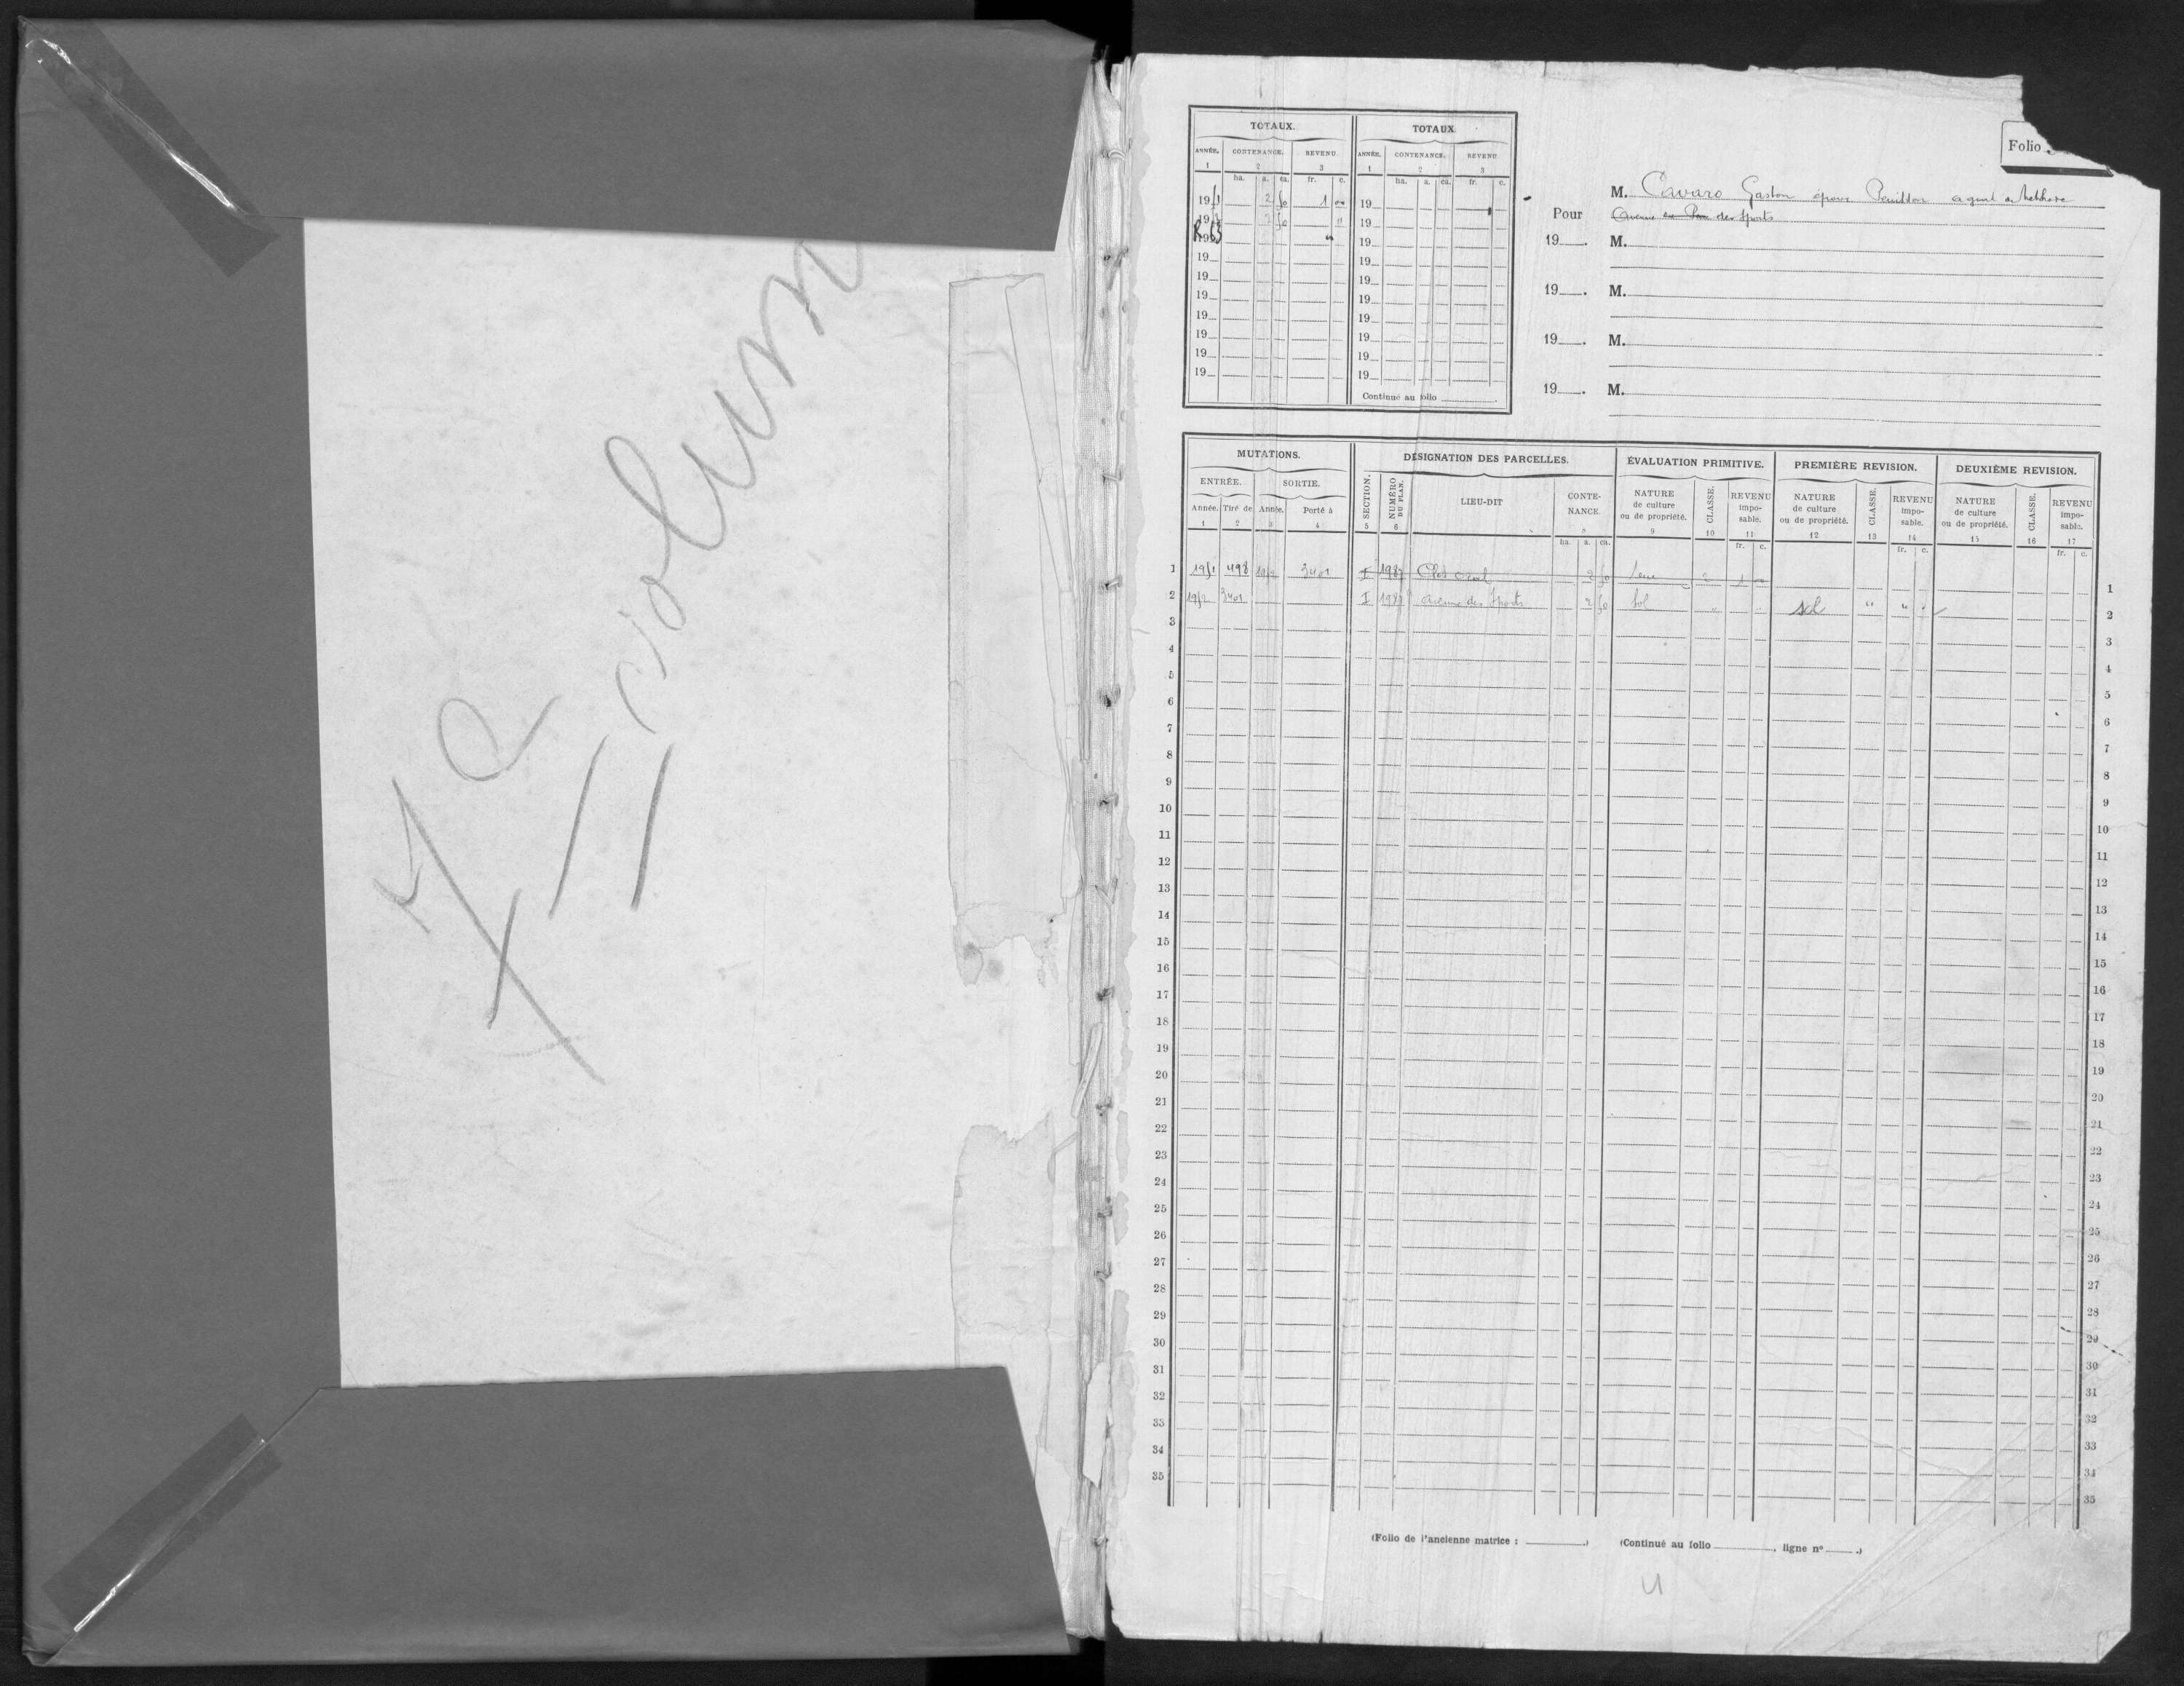 volume
TOTAUX.
ANNÉE. CONTENANCE. REVENU
1 2 3
ha. a. ca. fr. c.
1951 2 50 1 00
2 50 "
R 63 "
19
19
19
19
19
19
19
TOTAUX
ANNÉE. CONTENANCE. REVENU
1 2 3
ha. a. ca. fr. c.
19
19
19
19
19
19
19
19
19
19
Continué au folio
Folio
M. Cavaro Gaston époux
Pour Avenue des Sports
19 . M.
19 . M.
19 . M.
19 . M.
MUTATIONS. DÉSIGNATION DES PARCELLES. ÉVALUATION PRIMITIVE. PREMIÈRE REVISION. DEUXIÈME REVISION.
ENTRÉE. SORTIE. SECTION. NUMÉRO DU PLAN. LIEU-DIT CONTE- NANCE. NATURE de culture ou de propriété. CLASSE. REVENU impo- sable. NATURE de culture ou de propriété. CLASSE. REVENU impo- sable. NATURE de culture ou de propriété. CLASSE. REVENU impo- sable.
Année. Tiré de Année. Porté à
1 2 3 4 5 6 8 9 10 11 12 13 14 15 16 17
ha. a. ca. fr. c. fr. c. fr. c.
1 1951 498 1952 3401 I 1987 2 50 2 1 00 1
2 1952 3401 I 1987 Avenue des Sports 2 50 sol sol " " " 2
3 3
4 4
5 5
6 6
7 7
8 8
9 9
10 10
11 11
12 12
13 13
14 14
15 15
16 16
17 17
18 18
19 19
20 20
21 21
22 22
23 23
24 24
25 25
26 26
27 27
28 28
29 29
30 30
31 31
32 32
33 33
34 34
35 35
(Folio de l'ancienne matrice : .) (Continué au folio , ligne nº .)